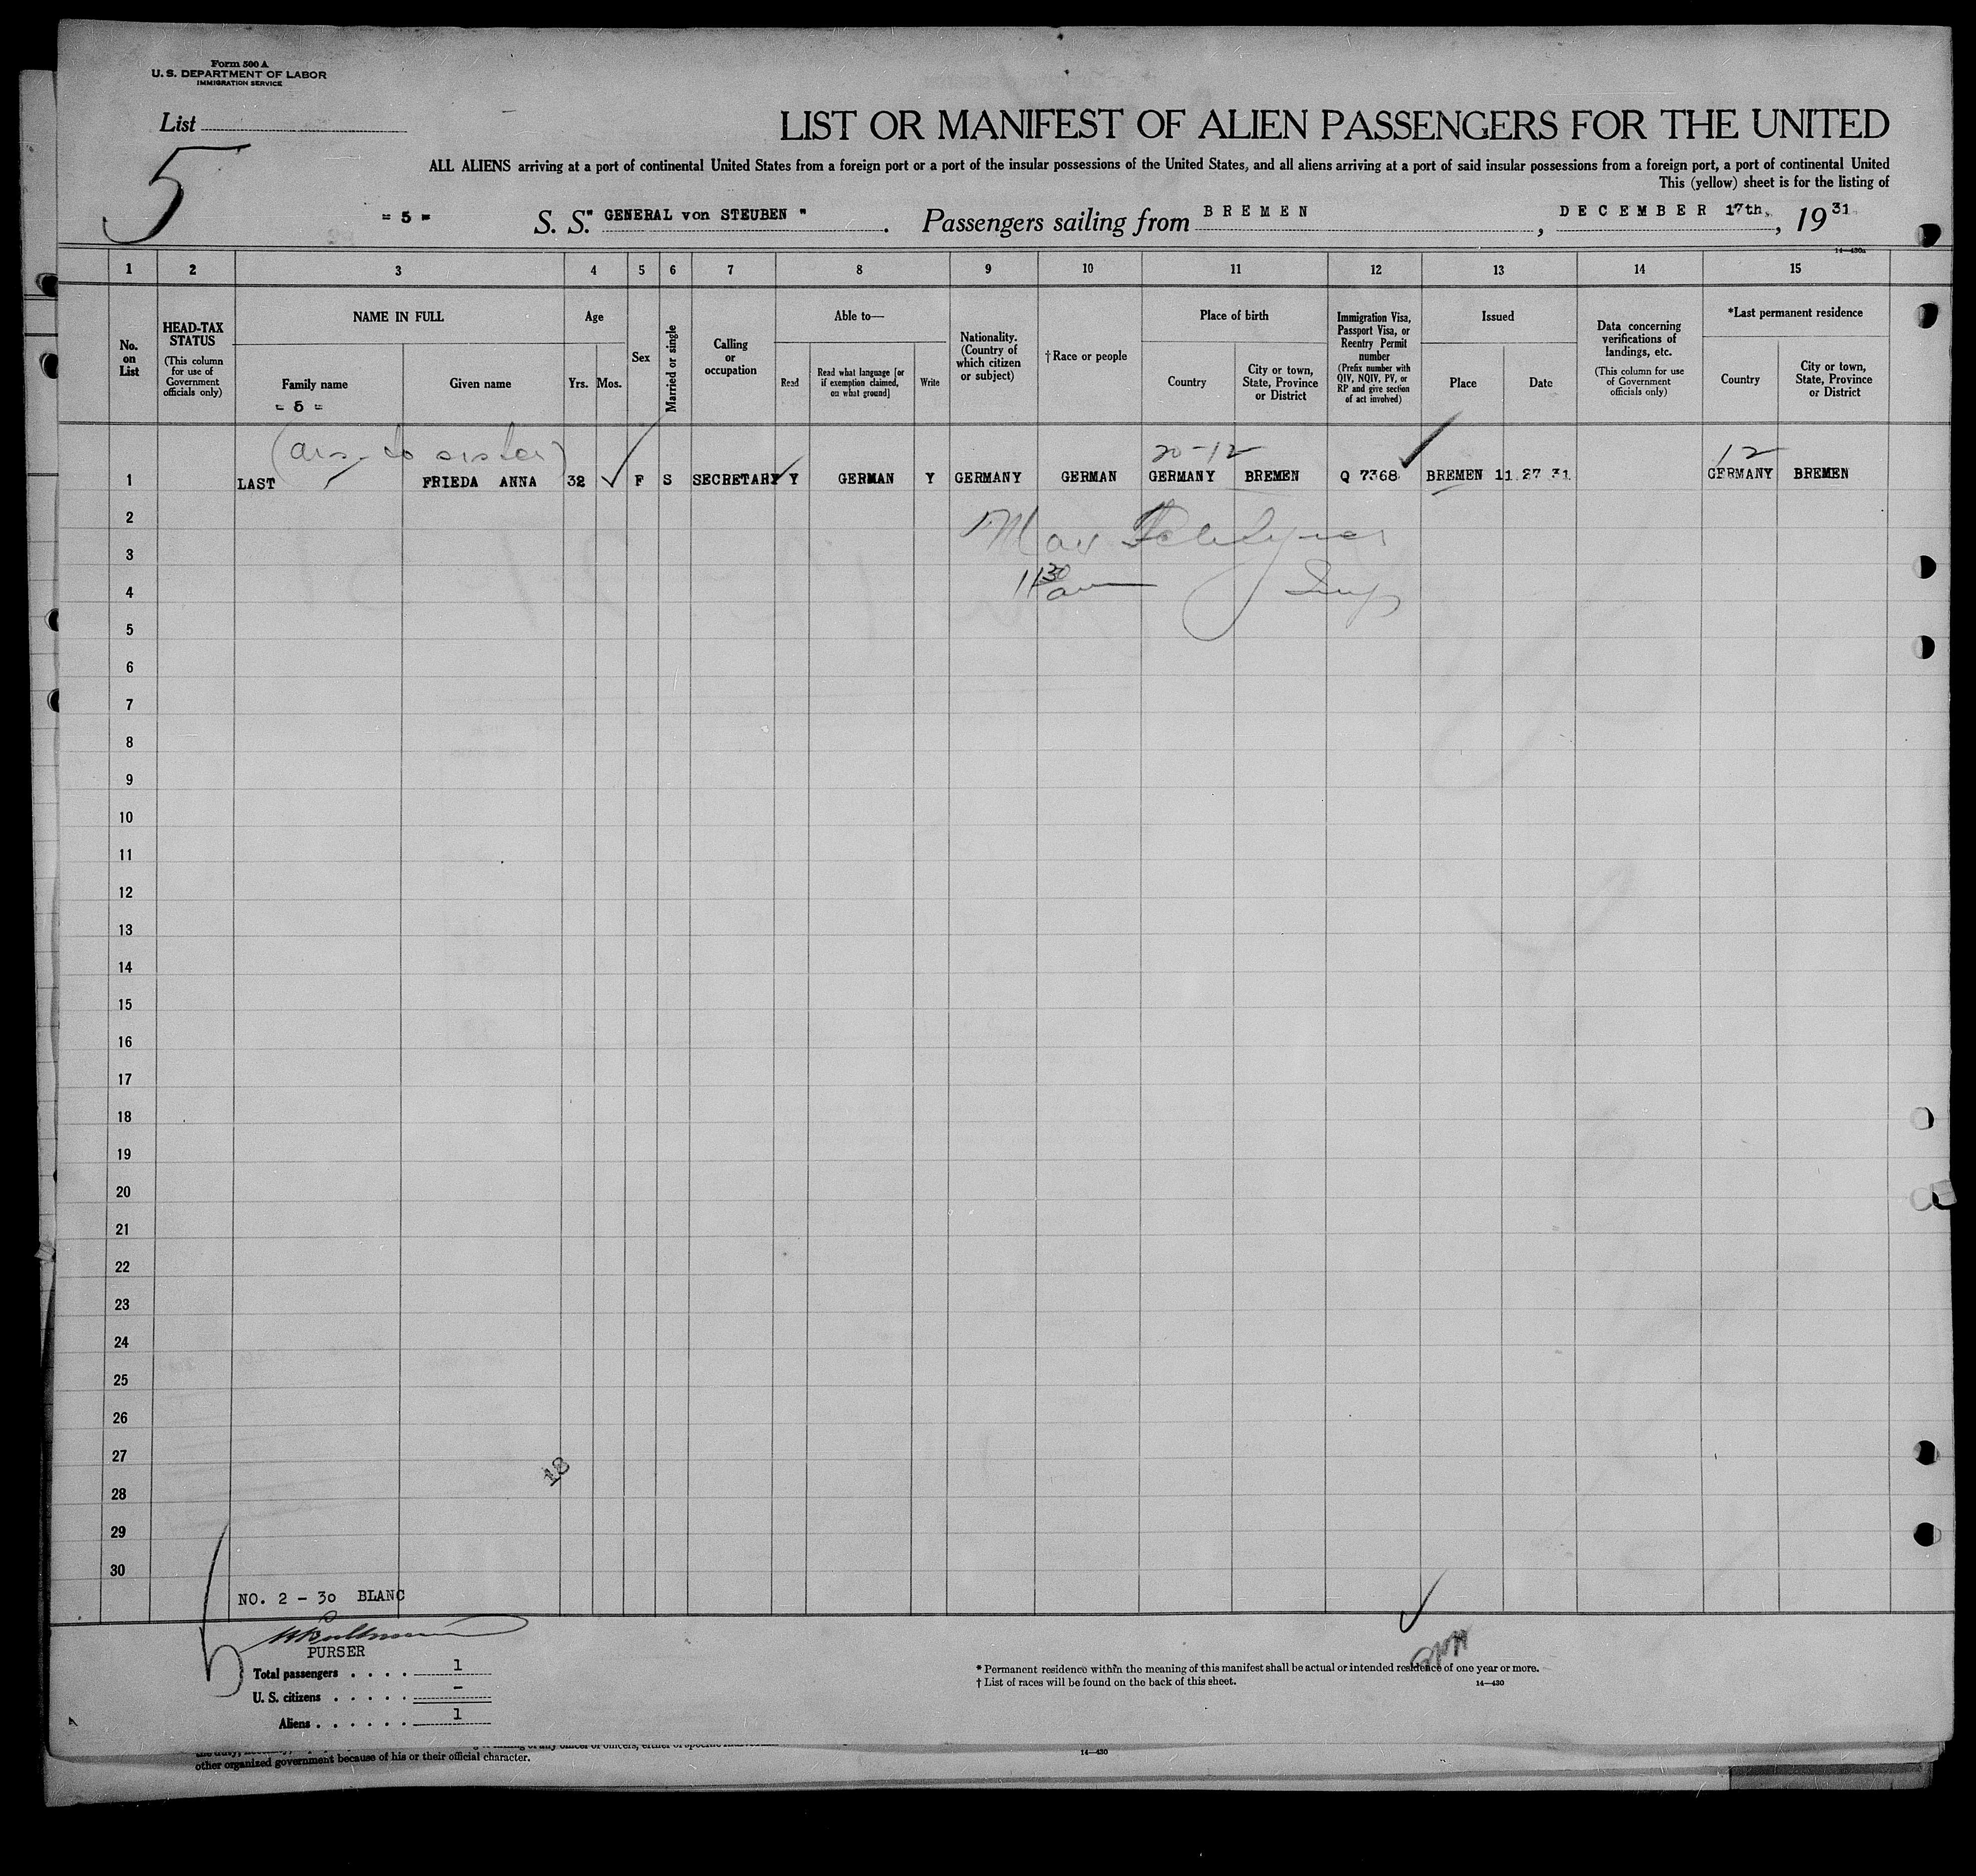 Form 500 A
U. S. DEPARTMENT OF LABOR
IMMIGRATION SERVICE
List
5
LIST OR MANIFEST OF ALIEN PASSENGERS FOR THE UNITED
ALL ALIENS arriving at a port of continental United States from a foreign port or a port of the insular possessions of the United States, and all aliens arriving at a port of said insular possessions from a foreign port, a port of continental United
This (yellow) sheet is for the listing of
= 5 = S. S. " GENERAL von STEUBEN " . Passengers sailing from BREMEN , DECEMBER 17th, , 19 31
14—430a
1 2 3 4 5 6 7 8 9 10 11 12 13 14 15
No. on List
HEAD-TAX STATUS
(This column for use of Government officials only)
NAME IN FULL
Family name
= 5 =
Given name
Age
Yrs. Mos.
Sex
Married or single
Calling or occupation
Able to—
Read
Read what language [or if exemption claimed, on what ground]
Write
Nationality. (Country of which citizen or subject)
† Race or people
Place of birth
Country
City or town, State, Province or District
Immigration Visa, Passport Visa, or Reentry Permit number
(Prefix number with QIV, NQIV, PV, or RP and give section of act involved)
Issued
Place
Date
Data concerning verifications of landings, etc.
(This column for use of Government officials only)
*Last permanent residence
Country
City or town, State, Province or District
to sister)
20-12
12
1 LAST FRIEDA ANNA 32 F S SECRETARY Y GERMAN Y GERMANY GERMAN GERMANY BREMEN Q 7368 BREMEN 11 27 31 GERMANY BREMEN
2
Max
3
11 30 am
4
5
6
7
8
9
10
11
12
13
14
15
16
17
18
19
20
21
22
23
24
25
26
27
18
28
29
30
NO. 2 - 30 BLANC
PURSER
Total passengers . . . . 1
U. S. citizens . . . . . -
Aliens . . . . . . 1
* Permanent residence within the meaning of this manifest shall be actual or intended residence of one year or more.
† List of races will be found on the back of this sheet.
14—430
other organized government because of his or their official character.
14—430